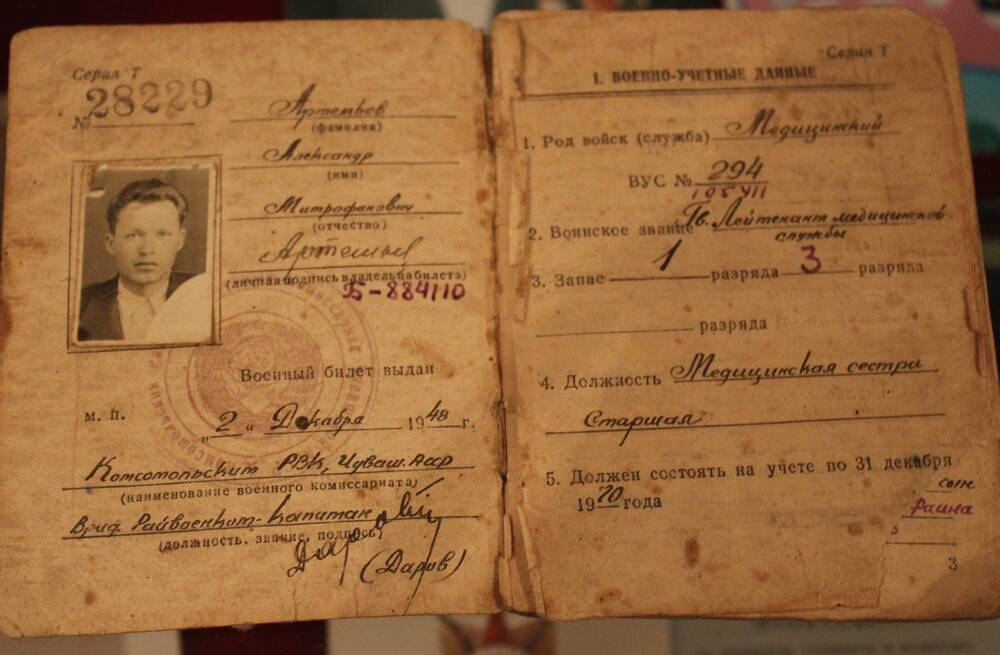 Серия Т
28229
№
Артемьев
(фамилия)
Александр
(имя)
Митрофанович
(отчество)
Артемьев
(личная подпись владельца билета)
Б-884110
Военный билет выдан
м. п.
„2 „ Декабря 1948 г.
Комсомольским РВК, Чуваш. Асср
(наименование военного комиссариата)
Врид. Райвоенком-капитан
(должность, звание, подпись)
(Даров)
Серия Т
I. ВОЕННО-УЧЕТНЫЕ ДАННЫЕ
1. Род войск (служба) Медицинский
ВУС № 294
105УП
2. Воинское звание Гв. Лейтенант медицинской
службы
3. Запас 1 разряда 3 разряда
разряда
4. Должность Медицинская сестра
Старшая
5. Должен состоять на учете по 31 декабря
1970 года
3